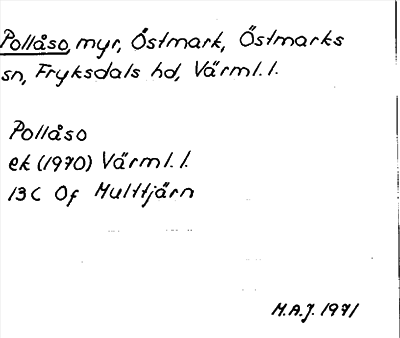 Pollåso, myr, Östmark, Östmarks
sn, Fryksdals hd, Värml. l.
Pollåso
ek (1970) Värml. l.
13C Of Multtjärn
M.A.J. 1971